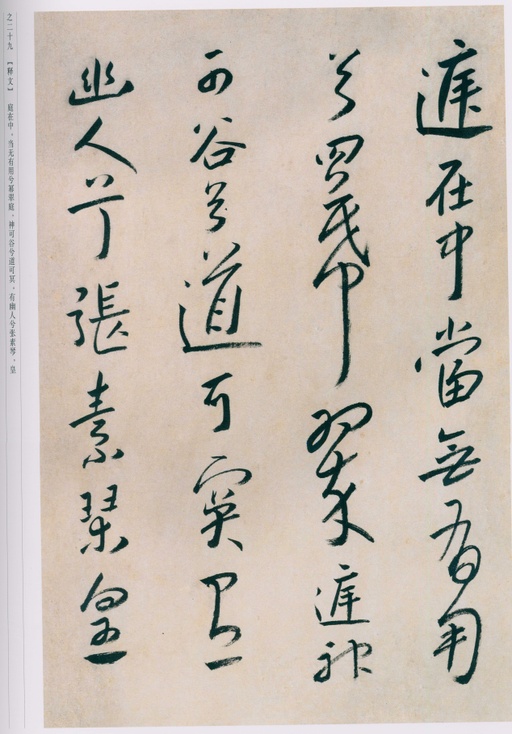 庭在中當無有用
兮冪翠庭神
可谷兮道可冥有
幽人兮張素琴皇
之二十九 【释文】 庭在中，当无有用兮幂翠庭，神可谷兮道可冥，有幽人兮张素琴，皇